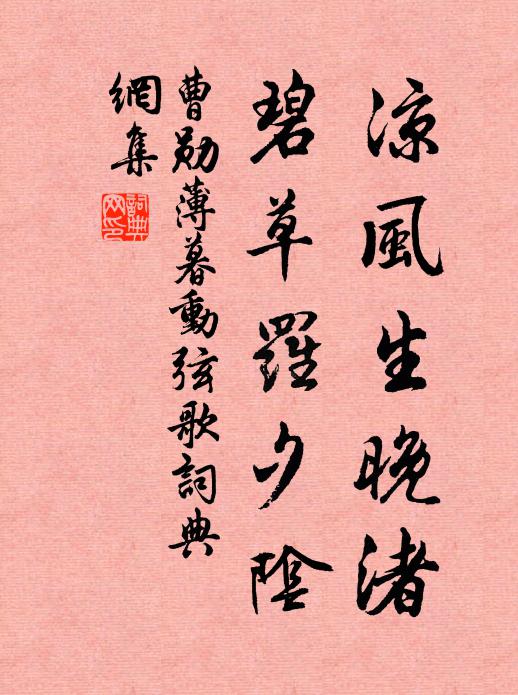 凉風生晚渚
碧草羅夕陰
曹勛薄暮動弦歌詞典
網集
詞典网印